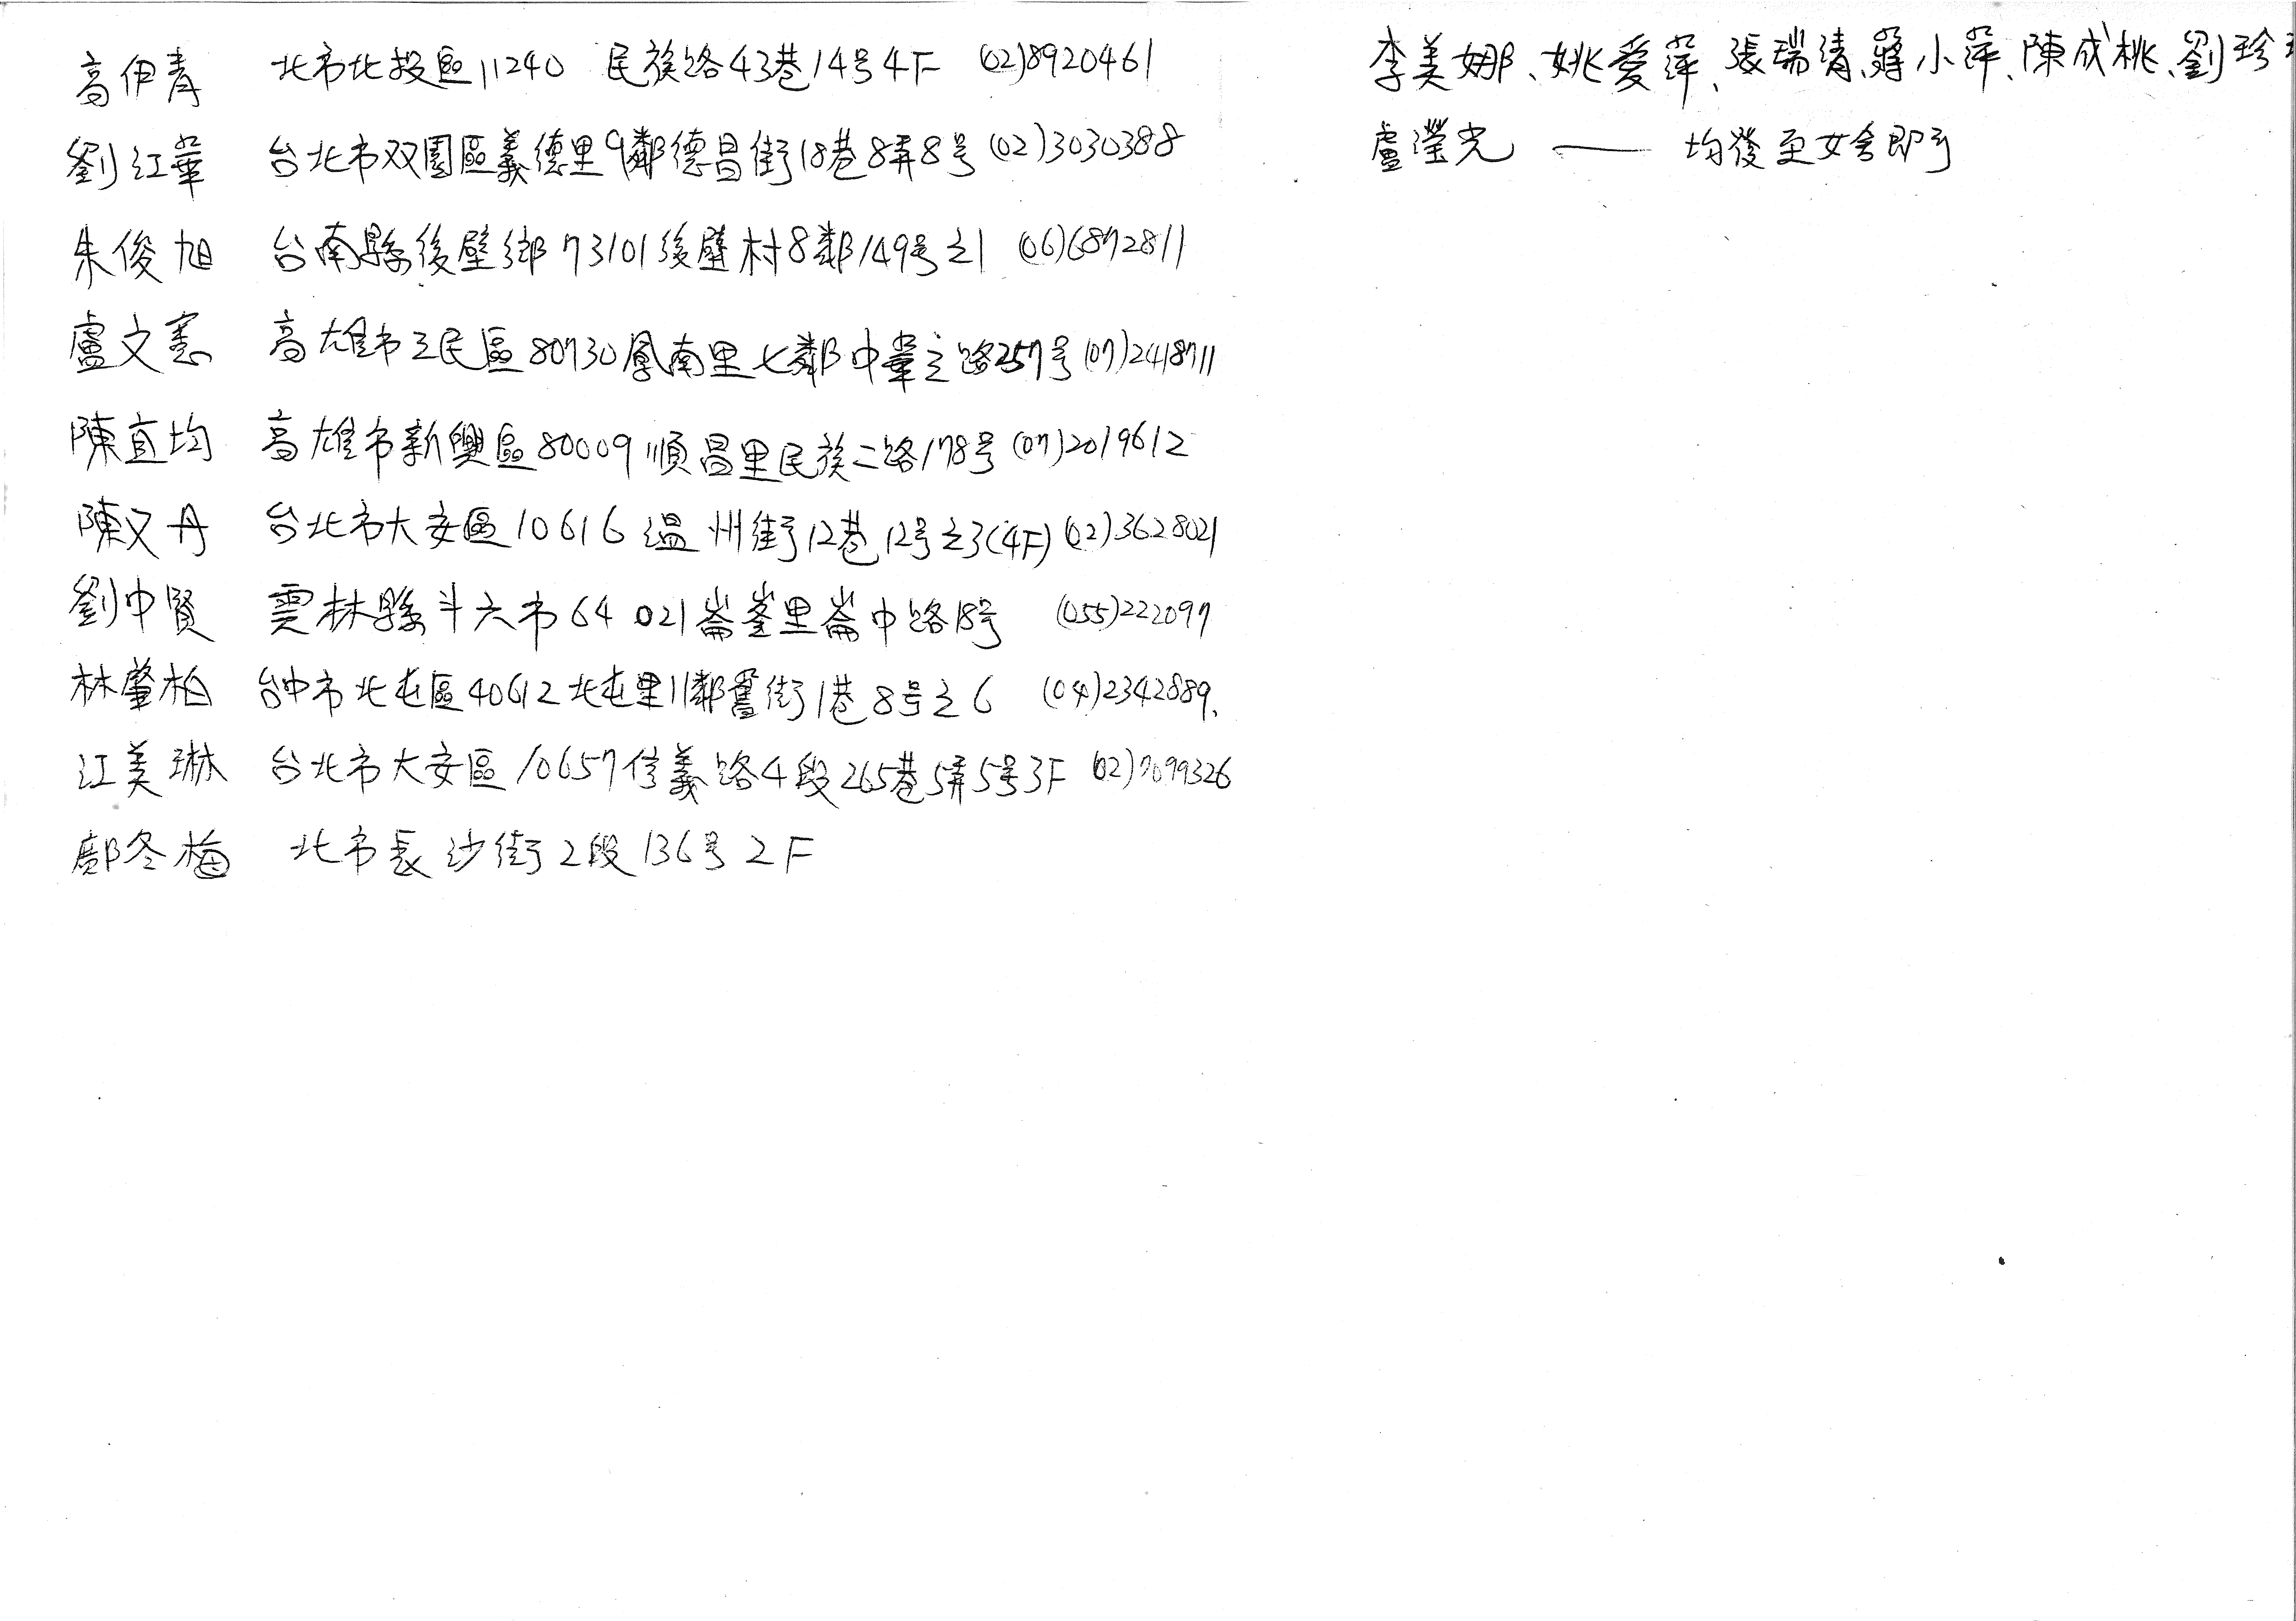 高伊青 北市北投區11240 民族路43巷14号4F (02)8920461
劉江華 台北市双園區義德里9鄰德昌街18巷8弄8号(02)3030388
朱俊旭 台南縣後壁鄉73101後壁村8鄰149号之1 (06)6872811
盧文憲 高雄市三民區80730鳳南里七鄰中華三路257号(07)2418711
陳宜均 高雄市新興區80009順昌里民族二路178号(07)2019612
陳又丹 台北市大安區10616溫州街12巷12号之3(4F)(02)3628021
劉中賢 雲林縣斗六市64021崙峯里崙中路18号 (055)222097
林肇柏 台中市北屯區40612北屯里11鄰舊街1巷8号之6 (04)2342889、
江美琳 台北市大安區10657信義路4段265巷5弄5号3F (02)7099326
鄺冬梅 北市長沙街2段136号2F
李美娜、姚愛萍、張瑞清、蔣小萍、陳成桃、劉珍
盧瀅光 —— 均後至女舍即可